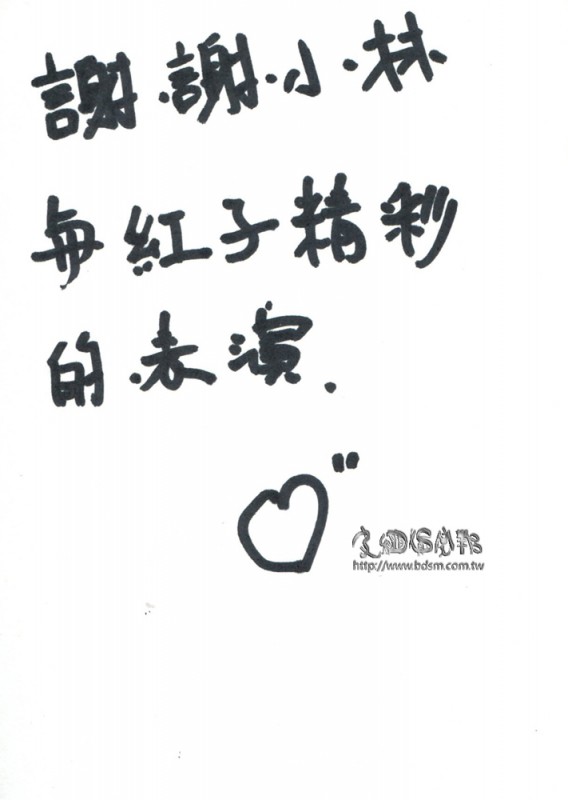 謝謝小林
与紅子精彩
的表演.
皮繩愉虐邦
http://www.bdsm.com.tw